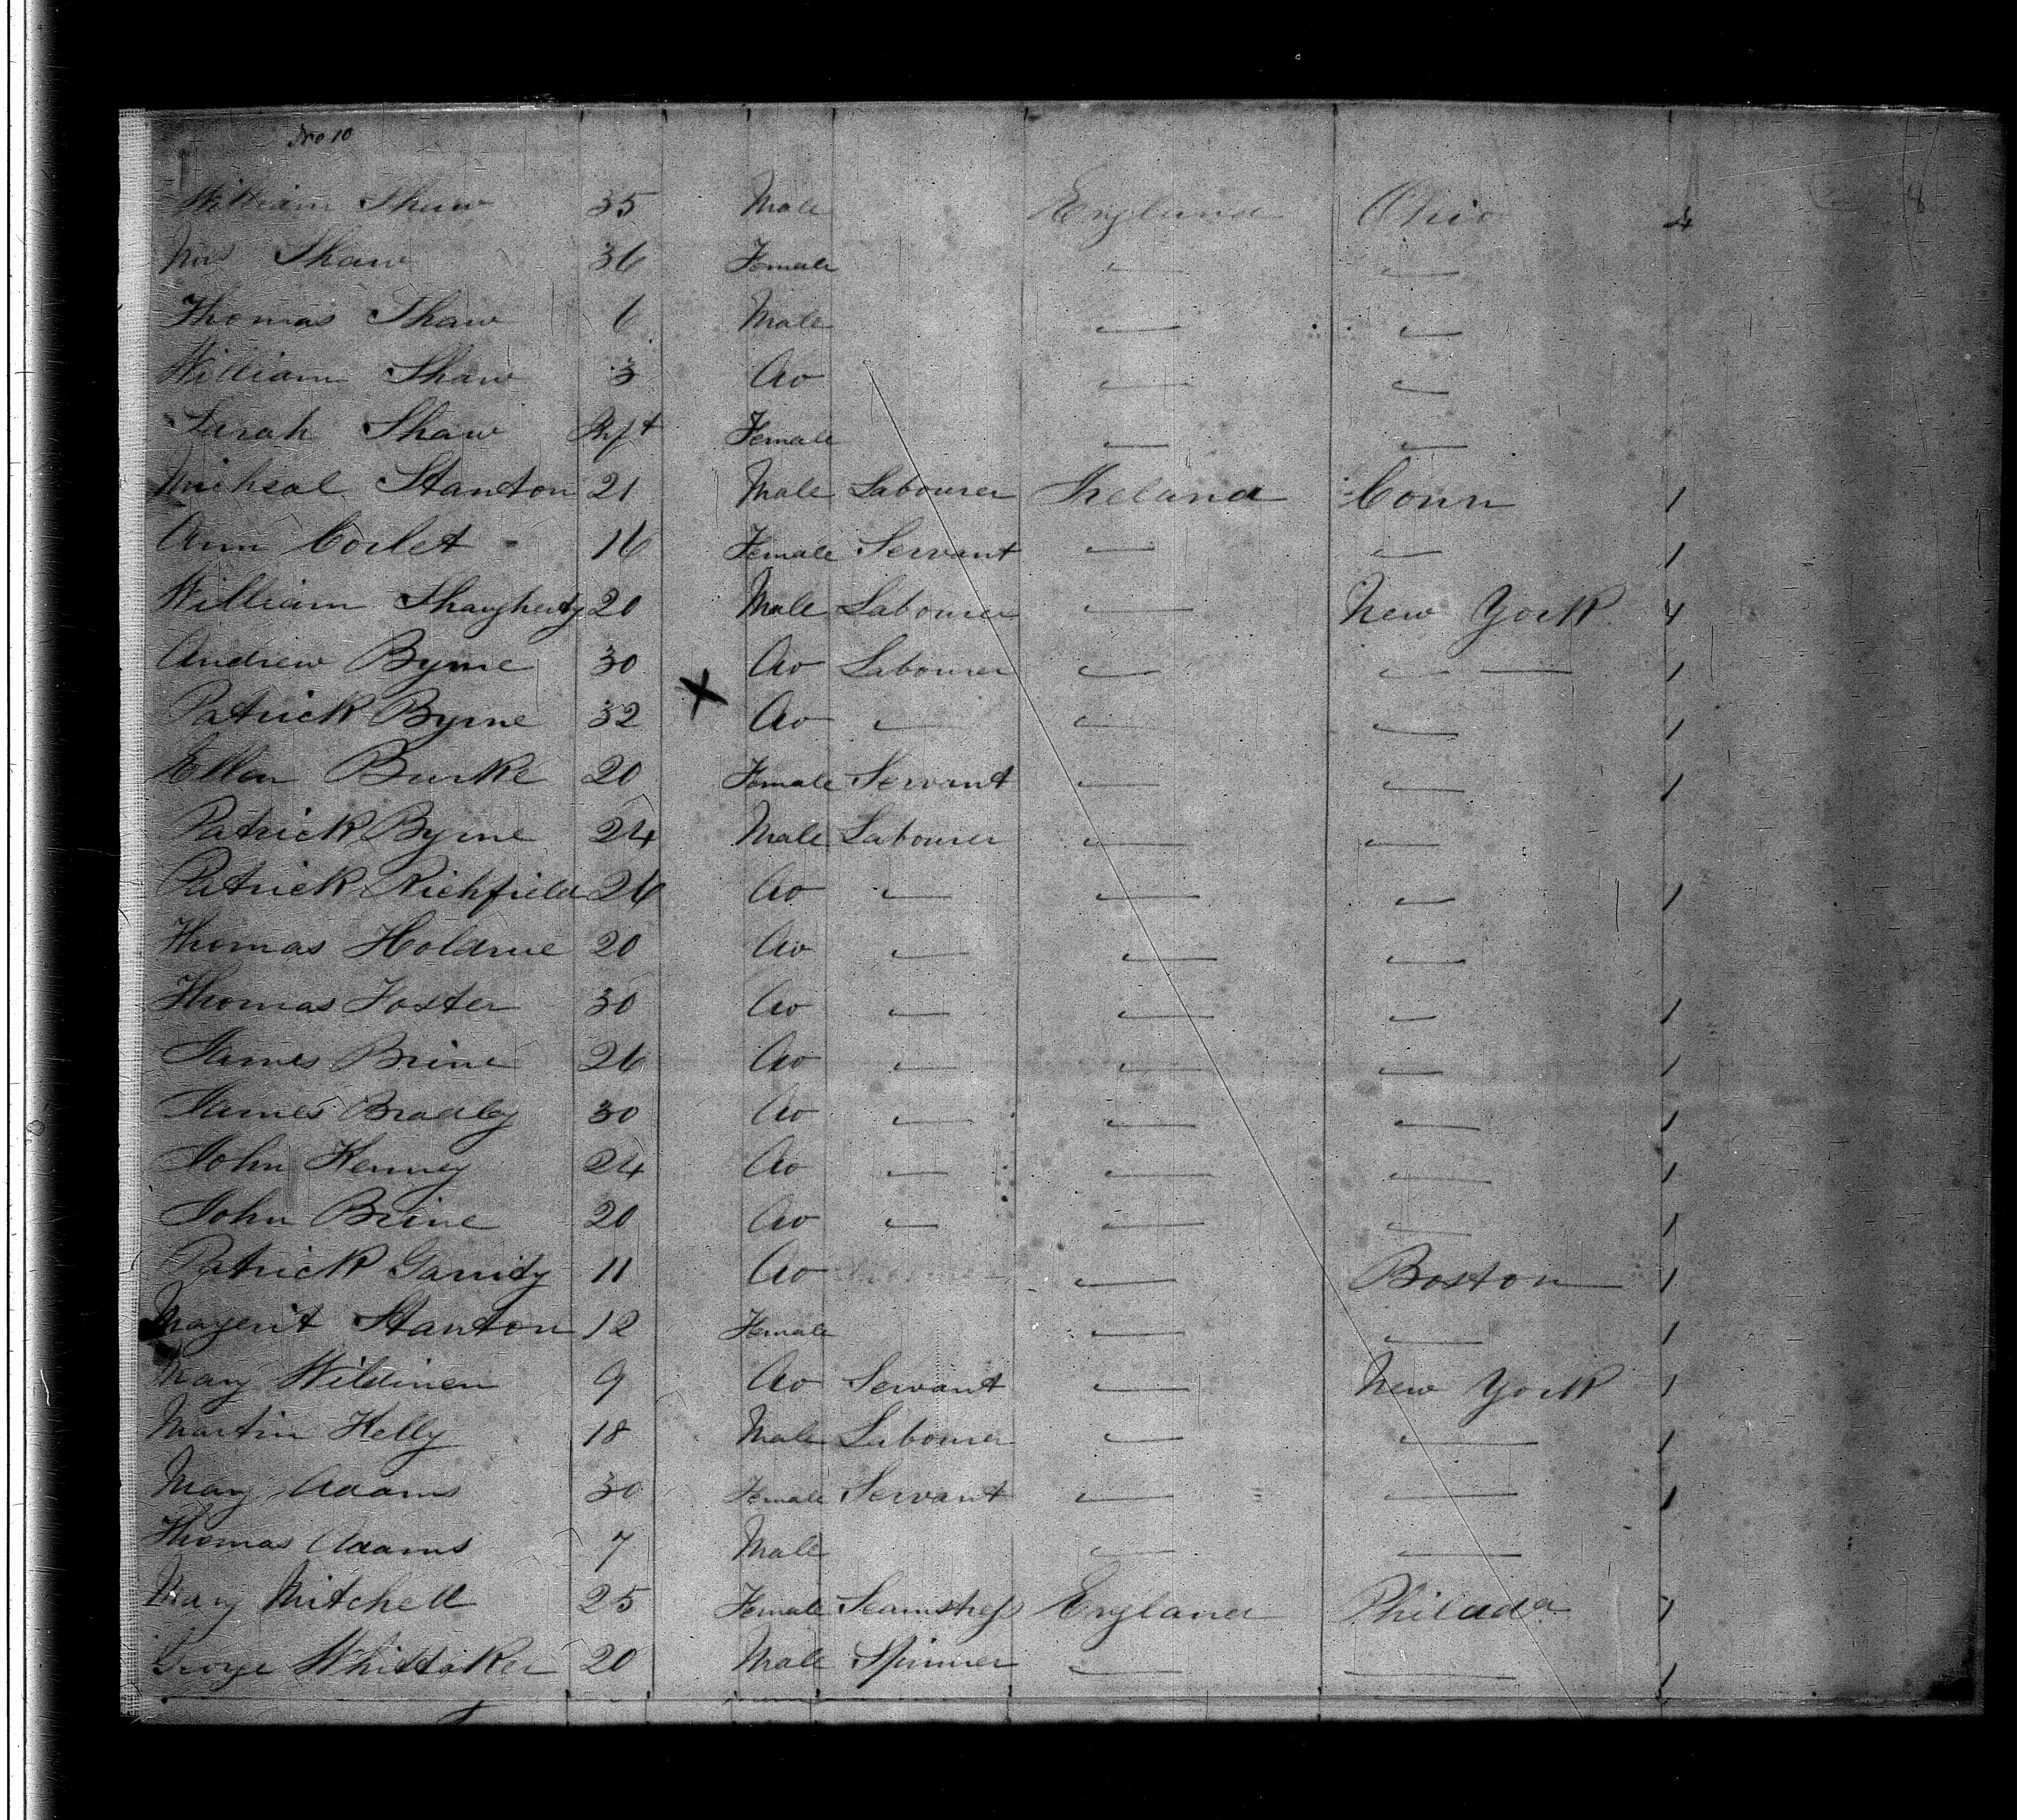 No 10
William Shaw 35 Male England Ohio 4
Mrs Shaw 36 Female — —
Thomas Shaw 6 Male — —
William Shaw 3 Do — —
Sarah Shaw Inft Female — —
Micheal Stanton 21 Male Labourer Ireland Conn 1
Ann Corlet 16 Female Servant — — 1
William Shaughesty 20 Male Labourer — New York 1
Andrew Byrne 30 Do Labourer — — — 1
Patrick Byrne 32 Do — — — 1
Ellen Burke 20 Female Servant — — 1
Patrick Byrne 24 Male Labourer — —
Patrick Richfield 26 Do — — — 1
Thomas Holdrue 20 Do — — —
Thomas Foster 30 Do — — — 1
James Brine 26 Do — — — 1
James Bradley 30 Do — — — 1
John Kenney 24 Do — — — 1
John Brine 20 Do — — — 1
Patrick Garrity 11 Do — Boston 1
Magerit Stanton 12 Female — — 1
Mary Wildinen 9 Do Servant — New York 1
Martin Kelly 18 Male Labourer — — 1
Mary Adams 30 Female Servant — — 1
Thomas Adams 7 Male — —
Mary Mitchell 25 Female Seamstress England Philada 1
George Whittaker 20 Male Spinner — — 1